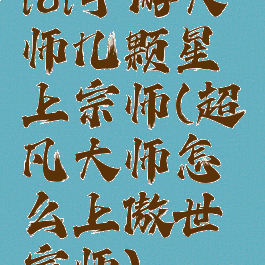 师九颗星
上宗师(超
凡大师怎
么上傲世
宗师)